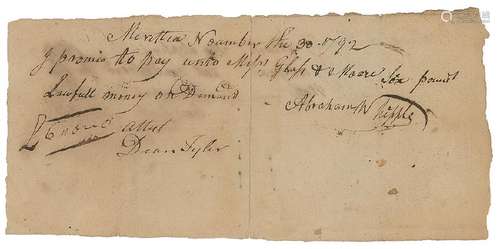 Merittea November the 30 1792
I promis to pay unto Messrs Glass & Moore Six pounds
Lawfull money on Demand
£6=0=0 Attest Abraham Whipple
Dean Tyler